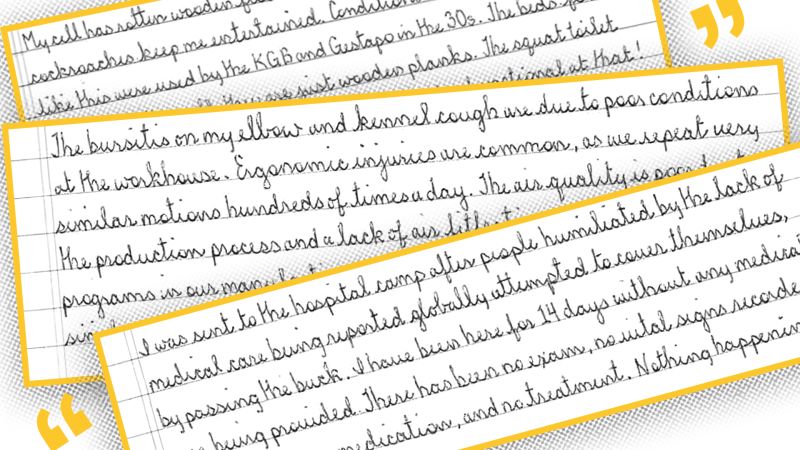 My cell has rotten wooden
cockroaches keep me entertained. Condition
like this were used by the KGB and Gestapo in the 30s. The beds
they are just wooden planks. The squat toilet
at that!
The bursitis on my elbow and kennel cough are due to poor conditions
at the workhouse. Ergonomic injuries are common, as we repeat very
similar motions hundreds of times a day. The air quality is
the production process and a lack of air
programs in our
I was sent to the hospital camp after people humiliated by the lack of
medical care being reported globally attempted to cover themselves,
by passing the buck. I have been here for 14 days without any medica
being provided. There has been no exam, no vital signs recorde
medication, and no treatment. Nothing happenin